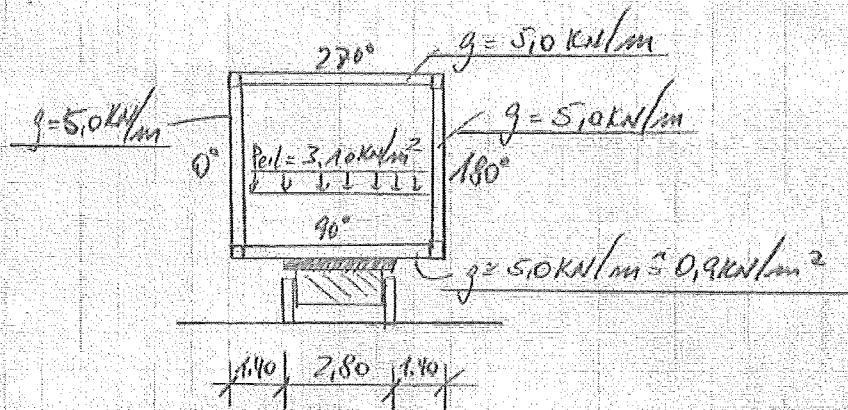 270°
g = 5,0 KN/m
g = 5,0 KN/m
g = 5,0 KN/m
0°
= 3,10 KN/m²
180°
90°
g = 5,0 KN/m ≙ 0,9 KN/m²
1.40 2,80 1.40